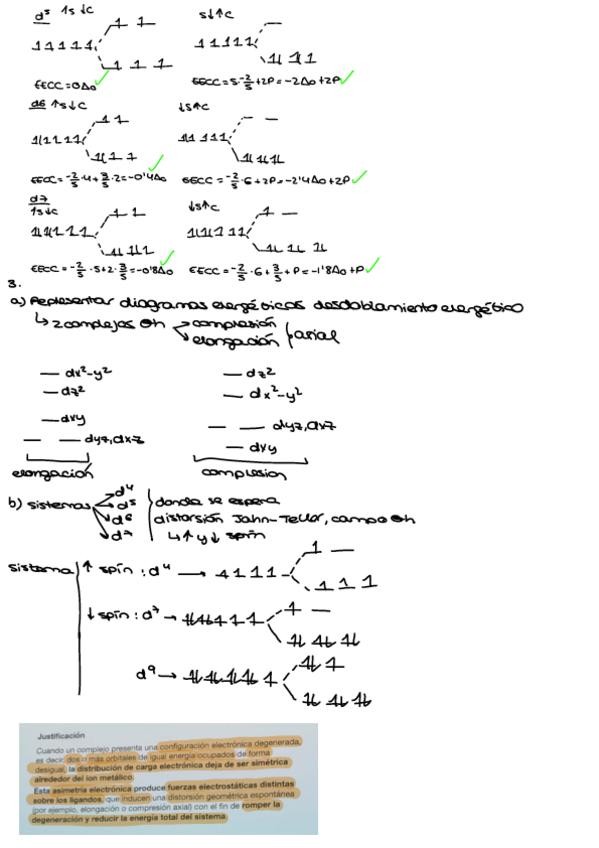 d⁵ ↑s ↓c
s↓↑c
EECC = 0Δo
EECC = 5·-2/5 + 2P = -2Δo + 2P
d6 ↑s↓c
↓s↑c
EECC = -2/5·4 + 3/5·2 = -0'4Δo
EECC = -2/5·6 + 2P = -2'4Δo + 2P
d7
↑s↓c
↓s↑c
EECC = -2/5·5 + 2·3/5 = -0'8Δo
EECC = -2/5·6 + 3/5 + P = -1'8Δo + P
3.
a) Representar diagramas energéticos desdoblamiento energético
↳ 2 complejos Oh
compresión
elongación
axial
dx²-y²
dz²
dxy
dyz, dxz
elongación
dz²
dx²-y²
dyz, dxz
dxy
compresion
b) sistemas
d⁴
d⁵
d⁶
d⁷
donde se espera
distorsión Jahn-Teller, campo Oh
↳ ↑ y ↓ spin
sistema
↑ spin: d⁴ →
↓ spin: d⁷ →
d⁹ →
Justificación
Cuando un complejo presenta una configuración electrónica degenerada,
es decir, dos o más orbitales de igual energía ocupados de forma
desigual, la distribución de carga electrónica deja de ser simétrica
alrededor del ion metálico.
Esta asimetría electrónica produce fuerzas electrostáticas distintas
sobre los ligandos, que inducen una distorsión geométrica espontánea
(por ejemplo, elongación o compresión axial) con el fin de romper la
degeneración y reducir la energía total del sistema.